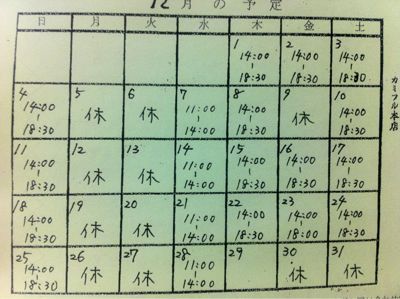 12月の予定
日 月 火 水 木 金 土
1 2 3
14:00 14:00 14:00
| | |
18:30 18:30 18:30
4 5 6 7 8 9 10
14:00 休 休 11:00 14:00 休 14:00
| | | |
18:30 14:00 18:30 18:30
11 12 13 14 15 16 17
14:00 休 休 11:00 14:00 14:00 14:00
| | | | |
18:30 14:00 18:30 18:30 18:30
18 19 20 21 22 23 24
14:00 休 休 11:00 14:00 14:00 14:00
| | | | |
18:30 14:00 18:30 18:00 18:30
25 26 27 28 29 30 31
14:00 休 休 11:00 休 休
| |
18:30 14:00
カミフル本店